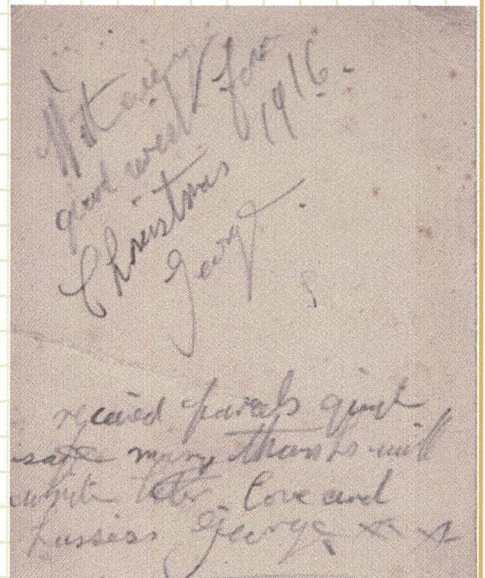 With every
good wish for
Christmas 1916.
George.
recieved parcels quit
safe many thanks will
write later Love and
kisses George x x x